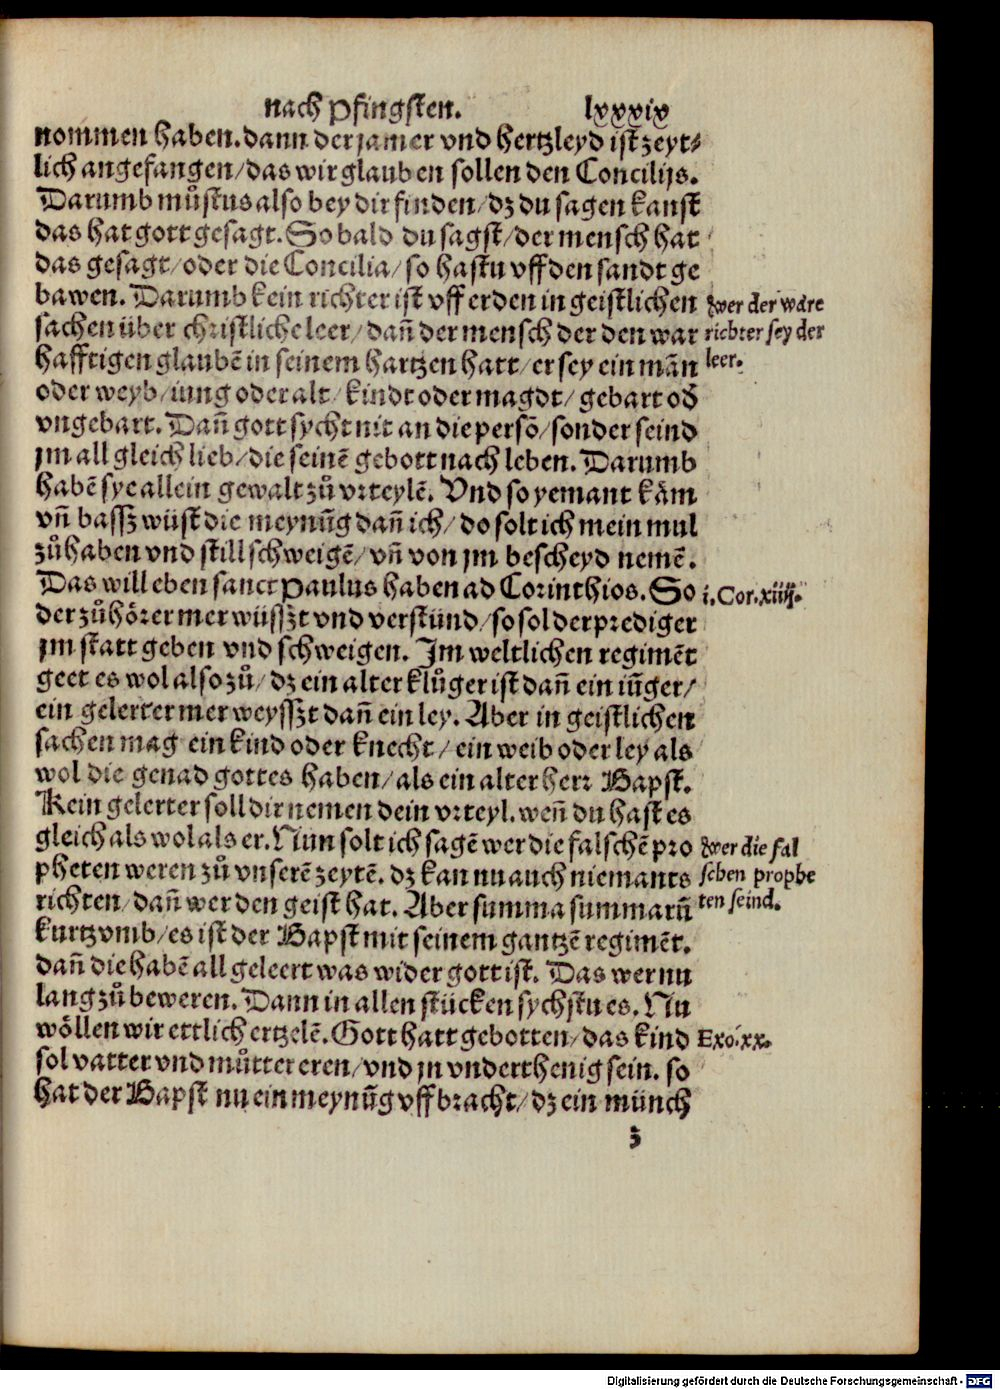 nach Pfingsten. lxxxix
nommen haben. dann der jamer vnd hertzleyd ist zeyt⸗
lich angefangen/ das wir glauben sollen den Concilijs.
Darumb můstus also bey dir finden/ dz du sagen kanst
das hat gott gesagt. So bald du sagst/ der mensch hat
das gesagt/ oder die Concilia/ so hastu vff den sandt ge
bawen. Darumb kein richter ist vff erden in geistlichen
wer der ware
sachen über christliche leer/ dañ der mensch der den war
richter sey der
hafftigen glaubẽ in seinem hartzen hatt/ er sey ein mãn
leer.
oder weyb/ iung oder alt/ kindt oder magdt/ gebart oď
vngebart. Dañ gott sycht nit an die persõ/ sonder seind
jm all gleich lieb/ die seinẽ gebott nach leben. Darumb
habẽ sye allein gewalt zů vrteylẽ. Vnd so yemant käm
vñ bassz wüst die meynũg dañ ich/ do solt ich mein mul
zů haben vnd still schweigẽ/ vñ von jm bescheyd nemẽ.
Das will eben sanct Paulus haben ad Corinthios. So
i. Cor. xiiij.
der zů hörer mer wüsszt vnd verstünd/ so sol der prediger
jm statt geben vnd schweigen. Im weltlichen regimẽt
geet es wol also zů/ dz ein alter klůger ist dañ ein iũger/
ein gelerter mer weysszt dañ ein ley. Aber in geistlichen
sachen mag ein kind oder knecht/ ein weib oder ley als
wol die genad gottes haben/ als ein alter herr Bapst.
Kein gelerter soll dir nemen dein vrteyl. weñ du hast es
gleich als wol als er. Nun solt ich sagẽ wer die falschẽ pro
wer die fal
pheten weren zů vnserẽ zeytẽ. dz kan nu auch niemants
schen prophe
richten/ dañ wer den geist hat. Aber summa summarũ
ten seind.
kurtzvmb/ es ist der Bapst mit seinem gantzẽ regimẽt.
dañ die habẽ all geleert was wider gott ist. Das wer nu
lang zů beweren. Dann in allen stücken sychstu es. Nu
wöllen wir ettlich ertzelẽ. Gott hatt gebotten/ das kind
Exo. xx.
sol vatter vnd můtter eren/ vnd jn vnderthenig sein. so
hat der Bapst nu ein meynũg vffbracht/ dz ein münch
z
Digitalisierung gefördert durch die Deutsche Forschungsgemeinschaft - DFG